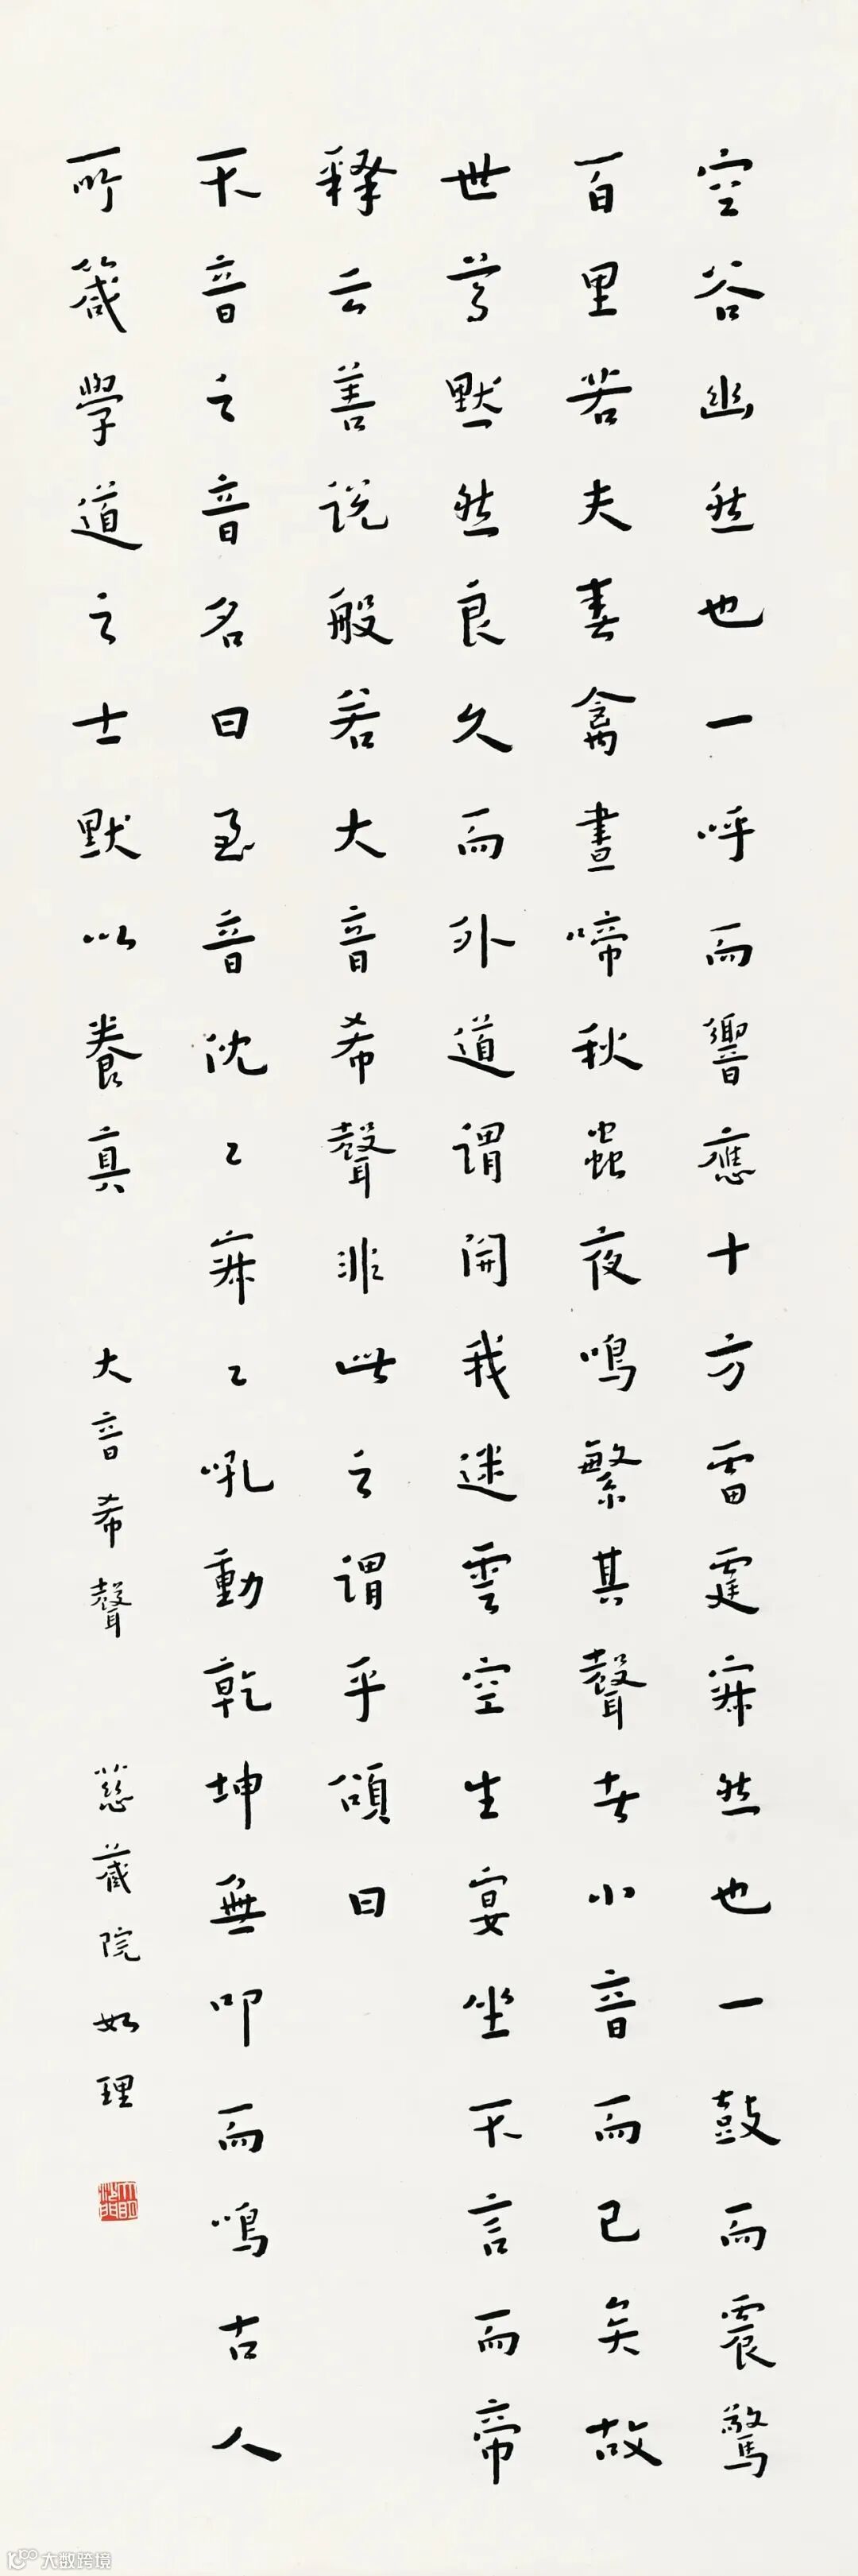 空谷幽然也一呼而響應十方雷霆寂然也一鼓而震驚
百里若夫春禽晝啼秋蟲夜鳴繁其聲者小音而已矣故
世尊默然良久而外道謂開我迷雲空生宴坐不言而帝
釋云善说般若大音希聲非此之謂乎頌曰
不音之音名曰至音沈々寂々吼動乾坤無叩而鳴古人
所箴學道之士默以養真
大音希聲
慈藏院如理
大数跨境